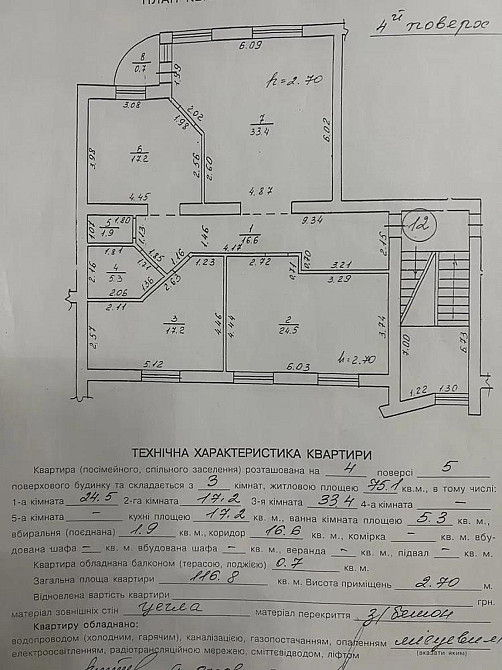 ПЛАН КВ
4й поверх
6.09
8
0.7
1.99
h=2.70
3.08
2.02
1.98
7
33.4
6.02
3.98
6
17.2
2.56
2.60
4.45
4.87
9.34
1.07
5
1.9
1.80
1.13
1.46
1
16.6
2.15
12
1.81
4.17
2.16
4
5.3
1.85
1.21
1.16
1.23
2.72
0.71
0.70
3.21
2.06
1.36
2.63
3.29
2.11
2.57
3
17.2
4.46
4.44
2
24.5
3.74
7.00
6.73
h=2.70
5.12
6.03
1.22
1.30
ТЕХНІЧНА ХАРАКТЕРИСТИКА КВАРТИРИ
Квартира (посімейного, спільного заселення) розташована на 4 поверсі 5
поверхового будинку та складається з 3 кімнат, житловою площею 75.1 кв.м., в тому числі:
1-а кімната 24.5 2-га кімната 17.2 3-я кімната 33.4 4-а кімната –
5-а кімната – кухні площею 17.2 кв. м., ванна кімната площею 5.3 кв. м.,
вбиральня (поєднана) 1.9 кв. м., коридор 16.6 кв. м., комірка – кв. м. вбу-
дована шафа – кв. м. вбудована шафа – кв. м., веранда – кв. м., підвал – кв. м.
Квартира обладнана балконом (терасою, лоджією) 0.7 кв. м.
Загальна площа квартири 116.8 кв. м. Висота приміщень 2.70 м.
Відновлена вартість квартири грн.
матеріал зовнішніх стін цегла матеріал перекриття з/бетон
Квартиру обладнано:
водопроводом (холодним, гарячим), каналізацією, газопостачанням, опаленням місцевим
(вказати яким)
електроосвітленням, радіотрансляційною мережею, сміттєвідводом, ліфтом